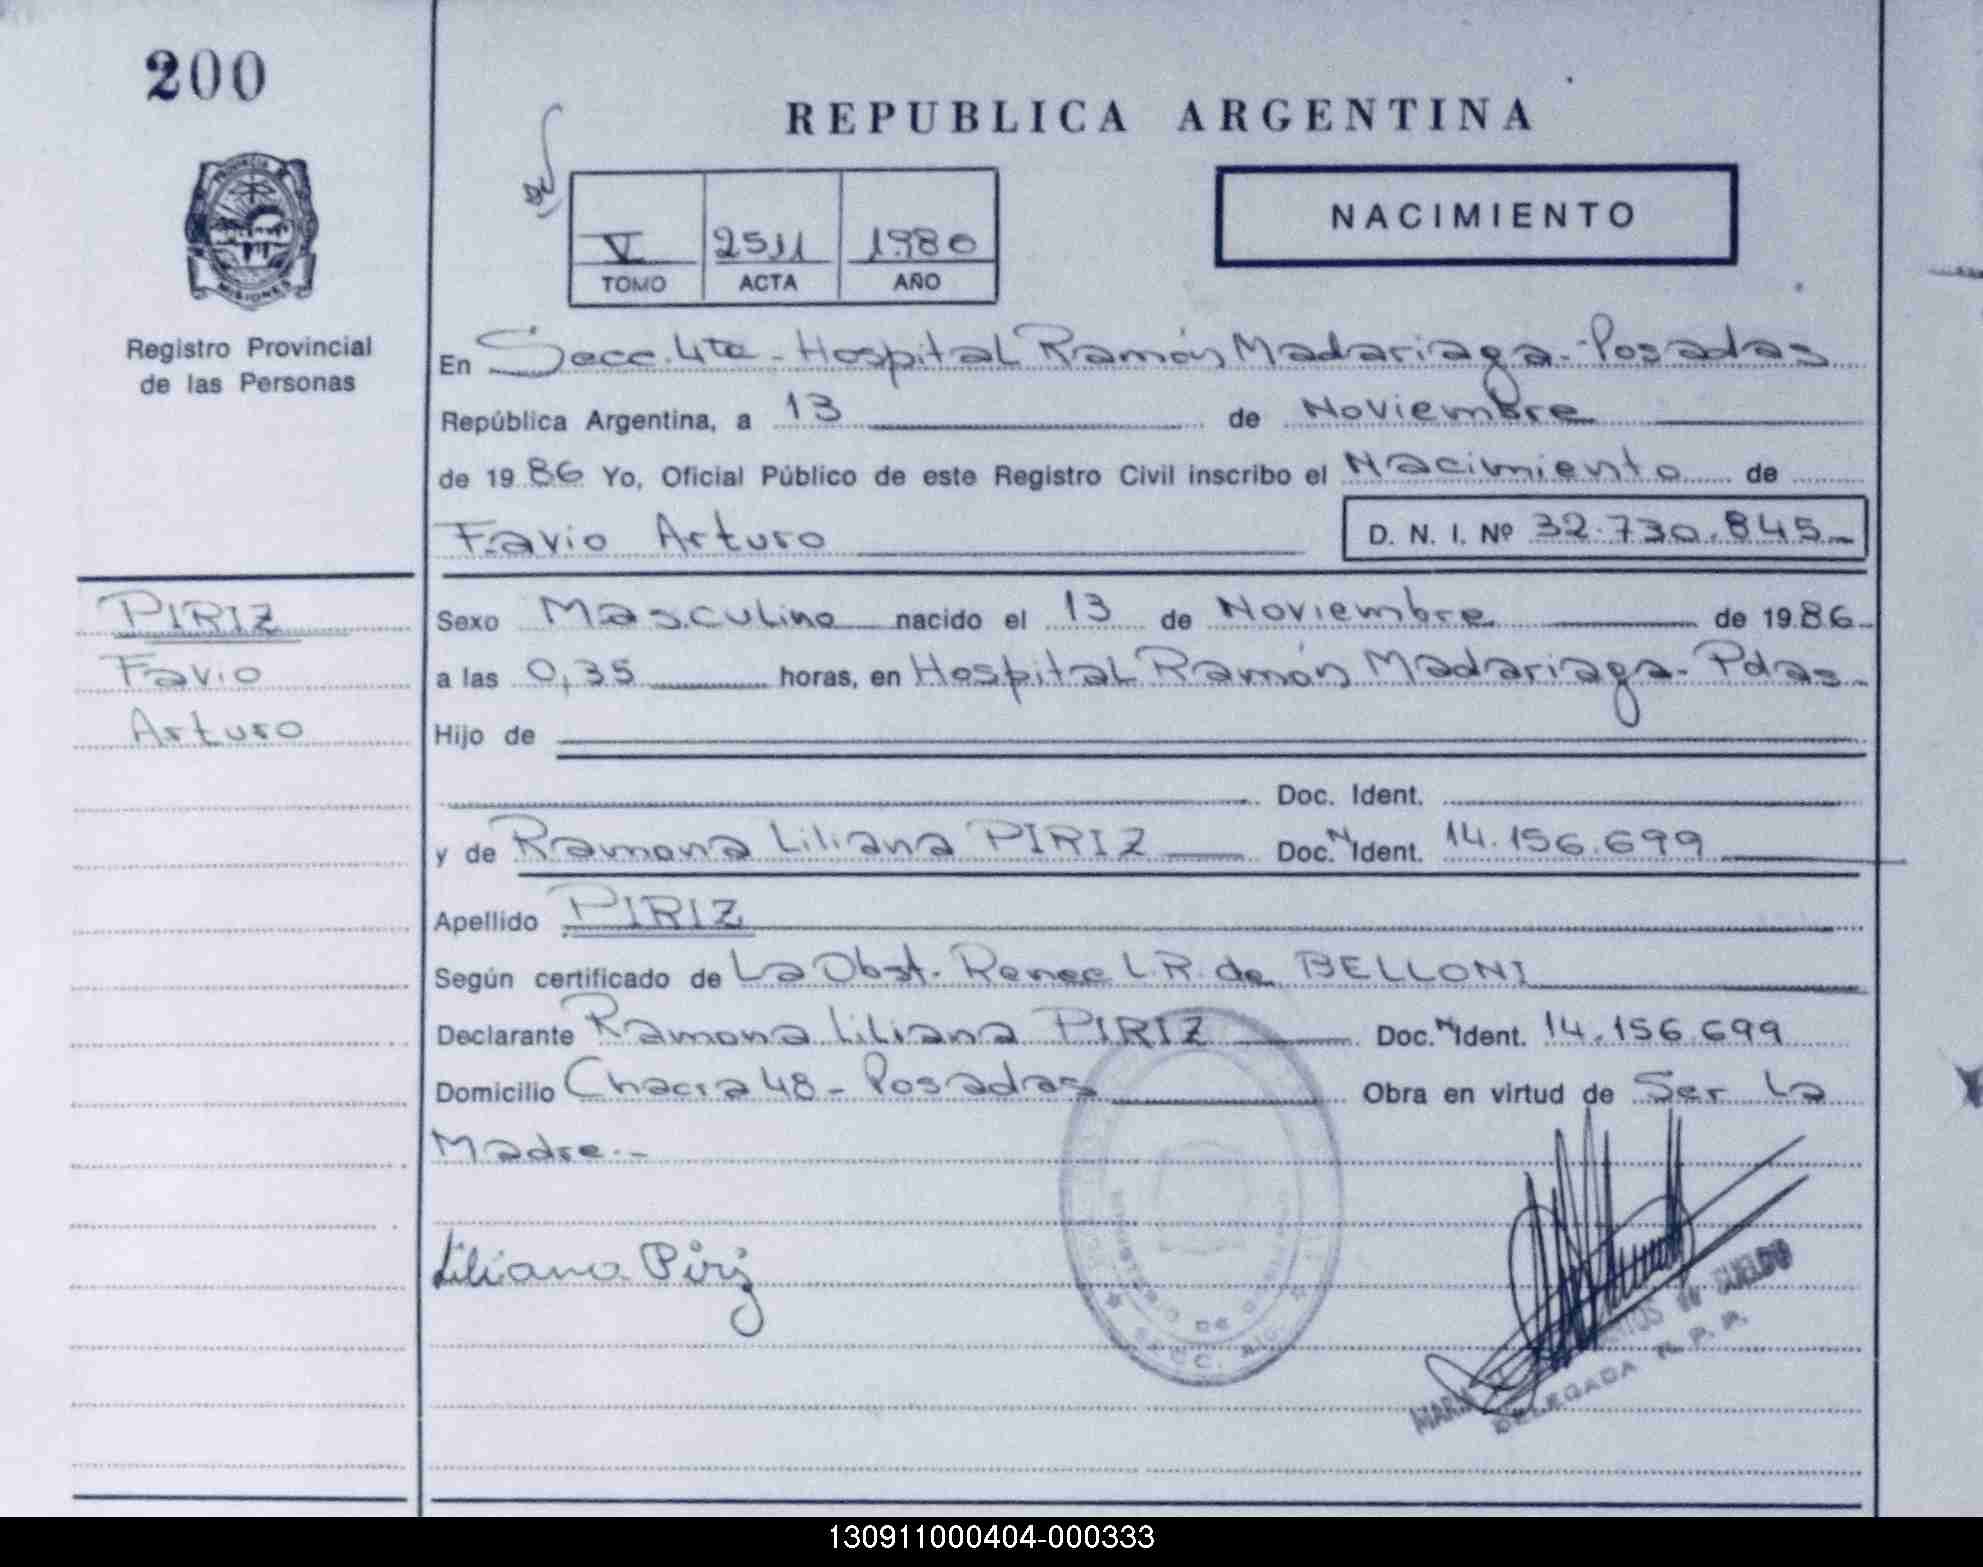 200
REPUBLICA ARGENTINA
PROVINCIA DE
MISIONES
Registro Provincial
de las Personas
NACIMIENTO
V 2511 1.986
TOMO ACTA AÑO
En Secc. 4ta - Hospital Ramón Madariaga - Posadas
República Argentina, a 13 de Noviembre
de 19 86 Yo, Oficial Público de este Registro Civil inscribo el Nacimiento de
Favio Arturo D. N. I. Nº 32.730.845
PIRIZ
Favio
Arturo
Sexo Masculino nacido el 13 de Noviembre de 19 86
a las 0,35 horas, en Hospital Ramón Madariaga - Pdas
Hijo de
Doc. Ident.
y de Ramona Liliana PIRIZ Doc. N Ident. 14.156.699
Apellido PIRIZ
Según certificado de La Obst. Renee L.R. de BELLONI
Declarante Ramona Liliana PIRIZ Doc. N Ident. 14.156.699
Domicilio Chacra 48 - Posadas Obra en virtud de Ser La
Madre.-
Liliana Piriz
DELEGADA R. P. P.
130911000404-000333